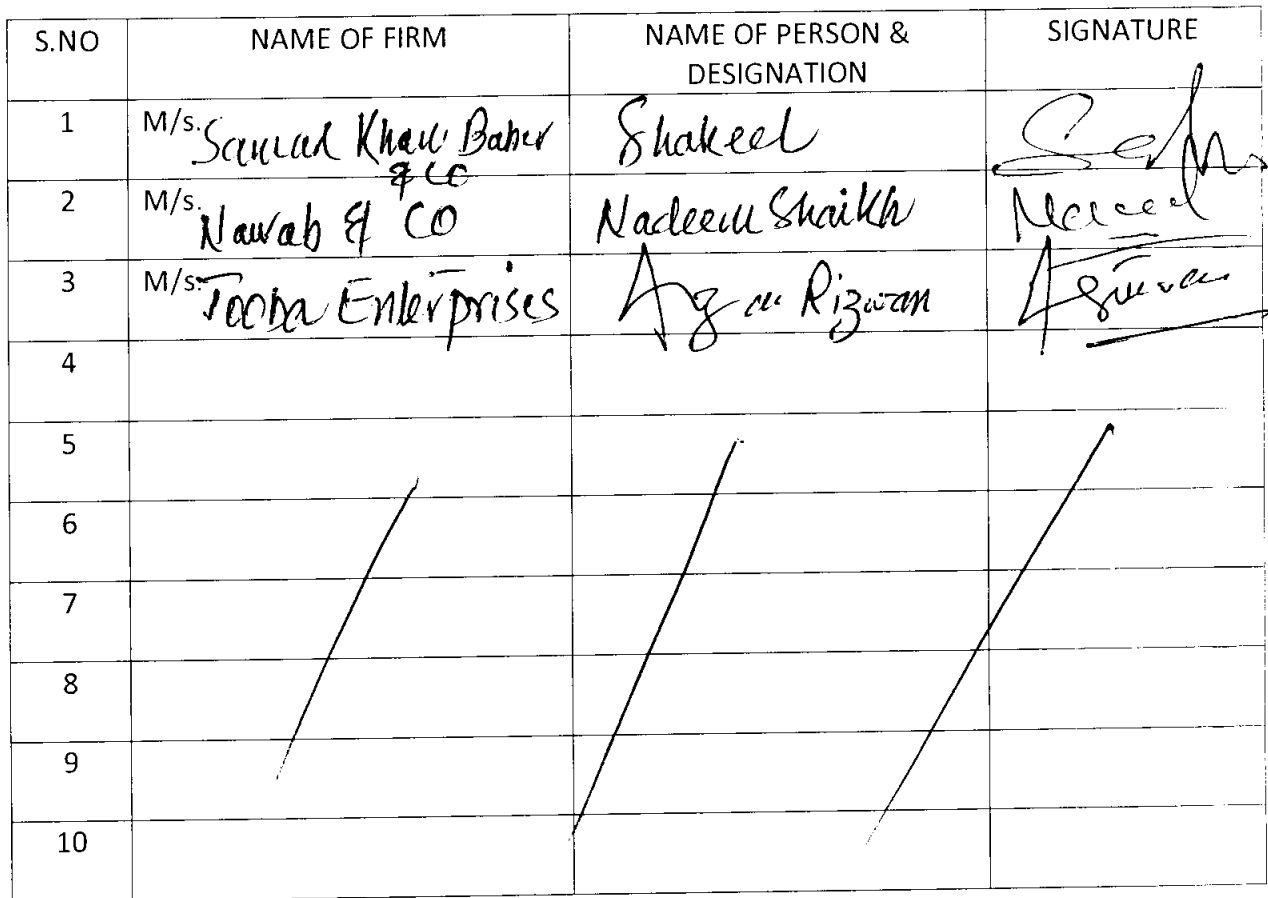 S.NO NAME OF FIRM NAME OF PERSON & SIGNATURE
DESIGNATION
1 M/s. Khan Baber Shakeel
& CO
2 M/s. Nawab & CO Nadeem Shaikh
3 M/s. Tooba Enterprises Rizwan
4
5
6
7
8
9
10